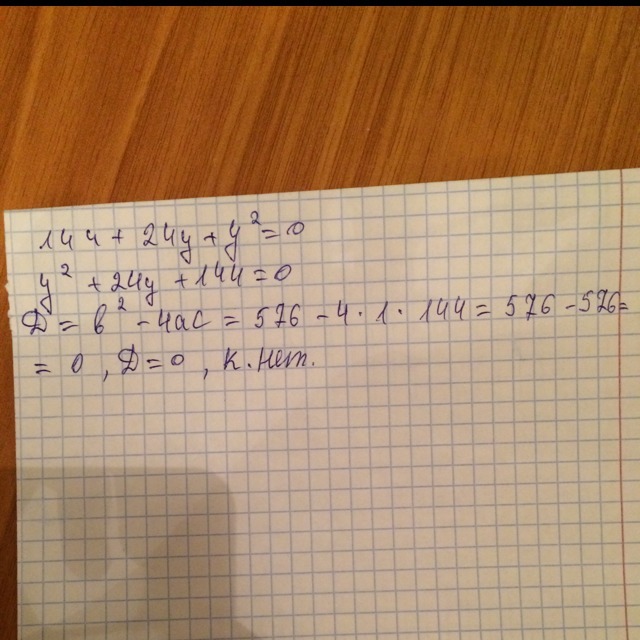 144 + 24y + y² = 0
y² + 24y + 144 = 0
Д = в² - 4ac = 576 - 4 · 1 · 144 = 576 - 576 =
= 0 , Д = 0 , к. нет.